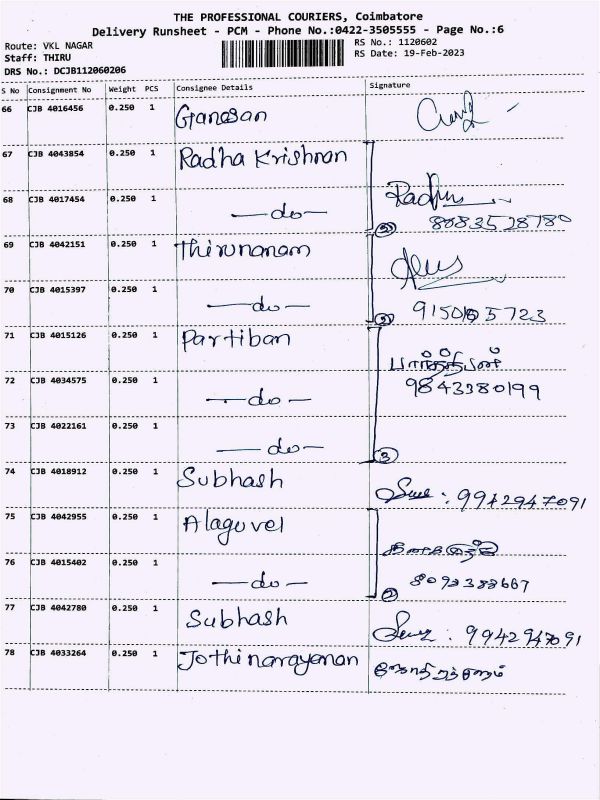 THE PROFESSIONAL COURIERS, Coimbatore
Delivery Runsheet - PCM - Phone No.:0422-3505555 - Page No.:6
Route: VKL NAGAR RS No.: 1120602
Staff: THIRU RS Date: 19-Feb-2023
DRS No.: DCJB112060206
S No Consignment No Weight PCS Consignee Details Signature
66 CJB 4016456 0.250 1 Ganesan
67 CJB 4043854 0.250 1 Radha Krishnan
68 CJB 4017454 0.250 1 —do— 8083528780
69 CJB 4042151 0.250 1 Thirunanam
70 CJB 4015397 0.250 1 —do—
71 CJB 4015126 0.250 1 Partiban பார்த்திபன்
72 CJB 4034575 0.250 1 —do— 9843380199
73 CJB 4022161 0.250 1 —do— 3
74 CJB 4018912 0.250 1 Subhash : 9942947091
75 CJB 4042955 0.250 1 Alaguvel
76 CJB 4015402 0.250 1 —do—
77 CJB 4042780 0.250 1 Subhash : 9942947091
78 CJB 4033264 0.250 1 Jothinarayanan